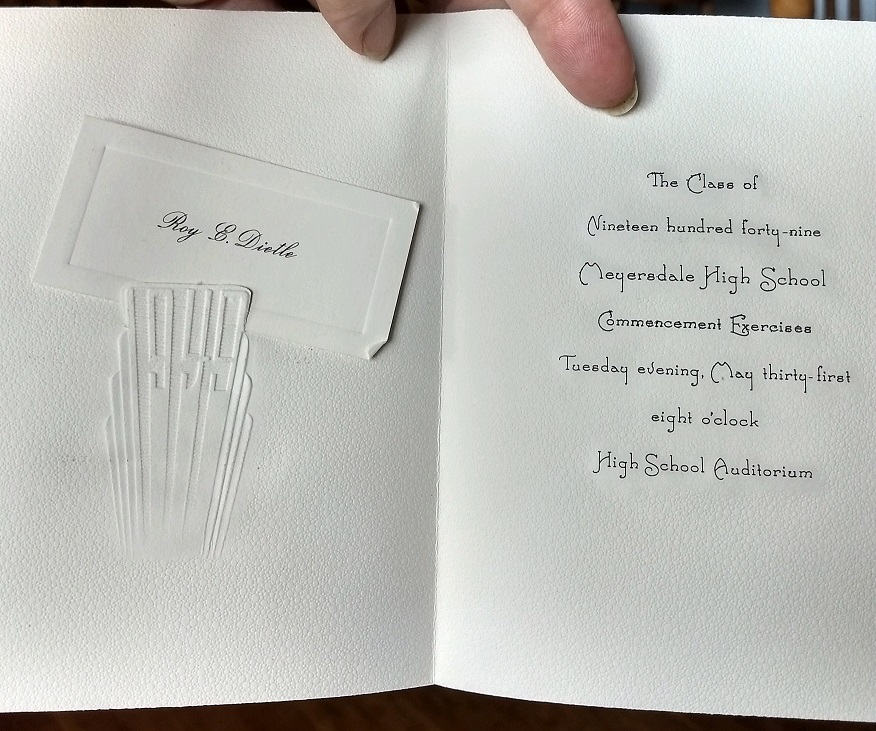 Roy E. Dietle
The Class of
Nineteen hundred forty-nine
Meyersdale High School
Commencement Exercises
Tuesday evening, May thirty-first
eight o'clock
High School Auditorium